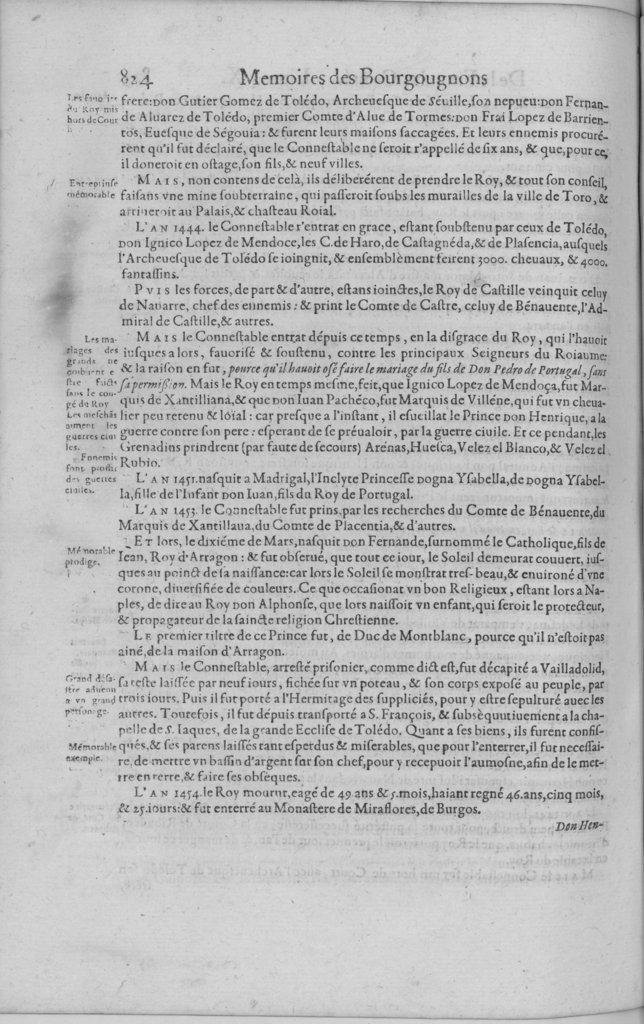 824 Memoires des Bourgougnons
hors de Cour
frere: DON Gutier Gomez de Tolédo, Archeuesque de Séuille, son nepueu: DON Fernan-
de Aluarez de Tolédo, premier Comte d'Alue de Tormes: DON Frai Lopez de Barrien-
tos, Euesque de Ségouia: & furent leurs maisons saccagées. Et leurs ennemis procuré-
rent qu'il fut déclairé, que le Connestable ne seroit r'appellé de six ans, & que, pour ce,
il doneroit en ostage, son fils, & neuf villes.
Entreprinse
mémorable
MAIS, non contens de celà, ils délibérérent de prendre le Roy, & tout son conseil,
faisans vne mine soubterraine, qui passeroit soubs les murailles de la ville de Toro, &
arriueroit au Palais, & chasteau Roial.
L'AN 1444. le Connestable r'entrat en grace, estant soubstenu par ceux de Tolédo,
DON Ignico Lopez de Mendoce, les C. de Haro, de Castagnéda, & de Plasencia, ausquels
l'Archeuesque de Tolédo se ioingnit, & ensemblément feirent 3000. cheuaux, & 4000.
fantassins.
PVIS les forces, de part & d'autre, estans ioinctes, le Roy de Castille veinquit celuy
de Nauarre, chef des ennemis: & print le Comte de Castre, celuy de Bénauente, l'Ad-
miral de Castille, & autres.
Les ma-
riages des
grands ne
sans le con-
gé du Roy
MAIS le Connestable entrat dépuis ce temps, en la disgrace du Roy, qui l'hauoit
iusques alors, fauorisé & soustenu, contre les principaux Seigneurs du Roiaume:
& la raison en fut, pource qu'il hauoit osé faire le mariage du fils de Don Pedro de Portugal, sans
sa permißion. Mais le Roy en temps mesme, feit, que Ignico Lopez de Mendoça, fut Mar-
quis de Xantilliana, & que DON Iuan Pachéco, fut Marquis de Villéne, qui fut vn cheua-
lier peu retenu & loïal: car presque a l'instant, il esueillat le Prince DON Henrique, a la
guerre contre son pere: esperant de se préualoir, par la guerre ciuile. Et ce pendant, les
Grenadins prindrent (par faute de secours) Arénas, Huesca, Velez el Blanco, & Velez el
Rubio.
guerres ciui
les.
Ennemis
des guerres
ciuiles.
L'AN 1451. nasquit a Madrigal, l'Inclyte Princesse DOGNA Ysabella, de DOGNA Ysabel-
la, fille de l'Infant DON Iuan, fils du Roy de Portugal.
L'AN 1453. le Connestable fut prins, par les recherches du Comte de Bénauente, du
Marquis de Xantillaua, du Comte de Placentia, & d'autres.
Mémorable
prodige.
ET lors, le dixiéme de Mars, nasquit DON Fernande, surnommé le Catholique, fils de
Iean, Roy d'Arragon: & fut obserué, que tout ce iour, le Soleil demeurat couuert, ius-
ques au poinct de sa naissance: car lors le Soleil se monstrat tres-beau, & enuironé d'vne
corone, diuersifiée de couleurs. Ce que occasionat vn bon Religieux, estant lors a Na-
ples, de dire au Roy DON Alphonse, que lors naissoit vn enfant, qui seroit le protecteur,
& propagateur de la saincte religion Chrestienne.
LE premier tiltre de ce Prince fut, de Duc de Montblanc, pource qu'il n'estoit pas
ainé, de la maison d'Arragon.
Grand désa-
stre aduenu
a vn grand
personage.
MAIS le Connestable, arresté prisonier, comme dict est, fut décapité a Vailladolid,
sa teste laissée par neuf iours, fichée sur vn poteau, & son corps exposé au peuple, par
trois iours. Puis il fut porté a l'Hermitage des suppliciés, pour y estre sepulturé auec les
autres. Toutefois, il fut dépuis transporté a S. François, & subséquutiuement a la cha-
pelle de S. Iaques, de la grande Ecclise de Tolédo. Quant a ses biens, ils furent confis-
qués, & ses parens laissés tant esperdus & miserables, que pour l'enterrer, il fut necessai-
re, de mettre vn bassin d'argent sur son chef, pour y recepuoir l'aumosne, afin de le met-
tre en terre, & faire ses obséques.
Mémorable
exemple.
L'AN 1454. le Roy mourut, eagé de 49 ans & 5. mois, haiant regné 46. ans, cinq mois,
& 25. iours: & fut enterré au Monastere de Miraflores, de Burgos.
Don Hen-